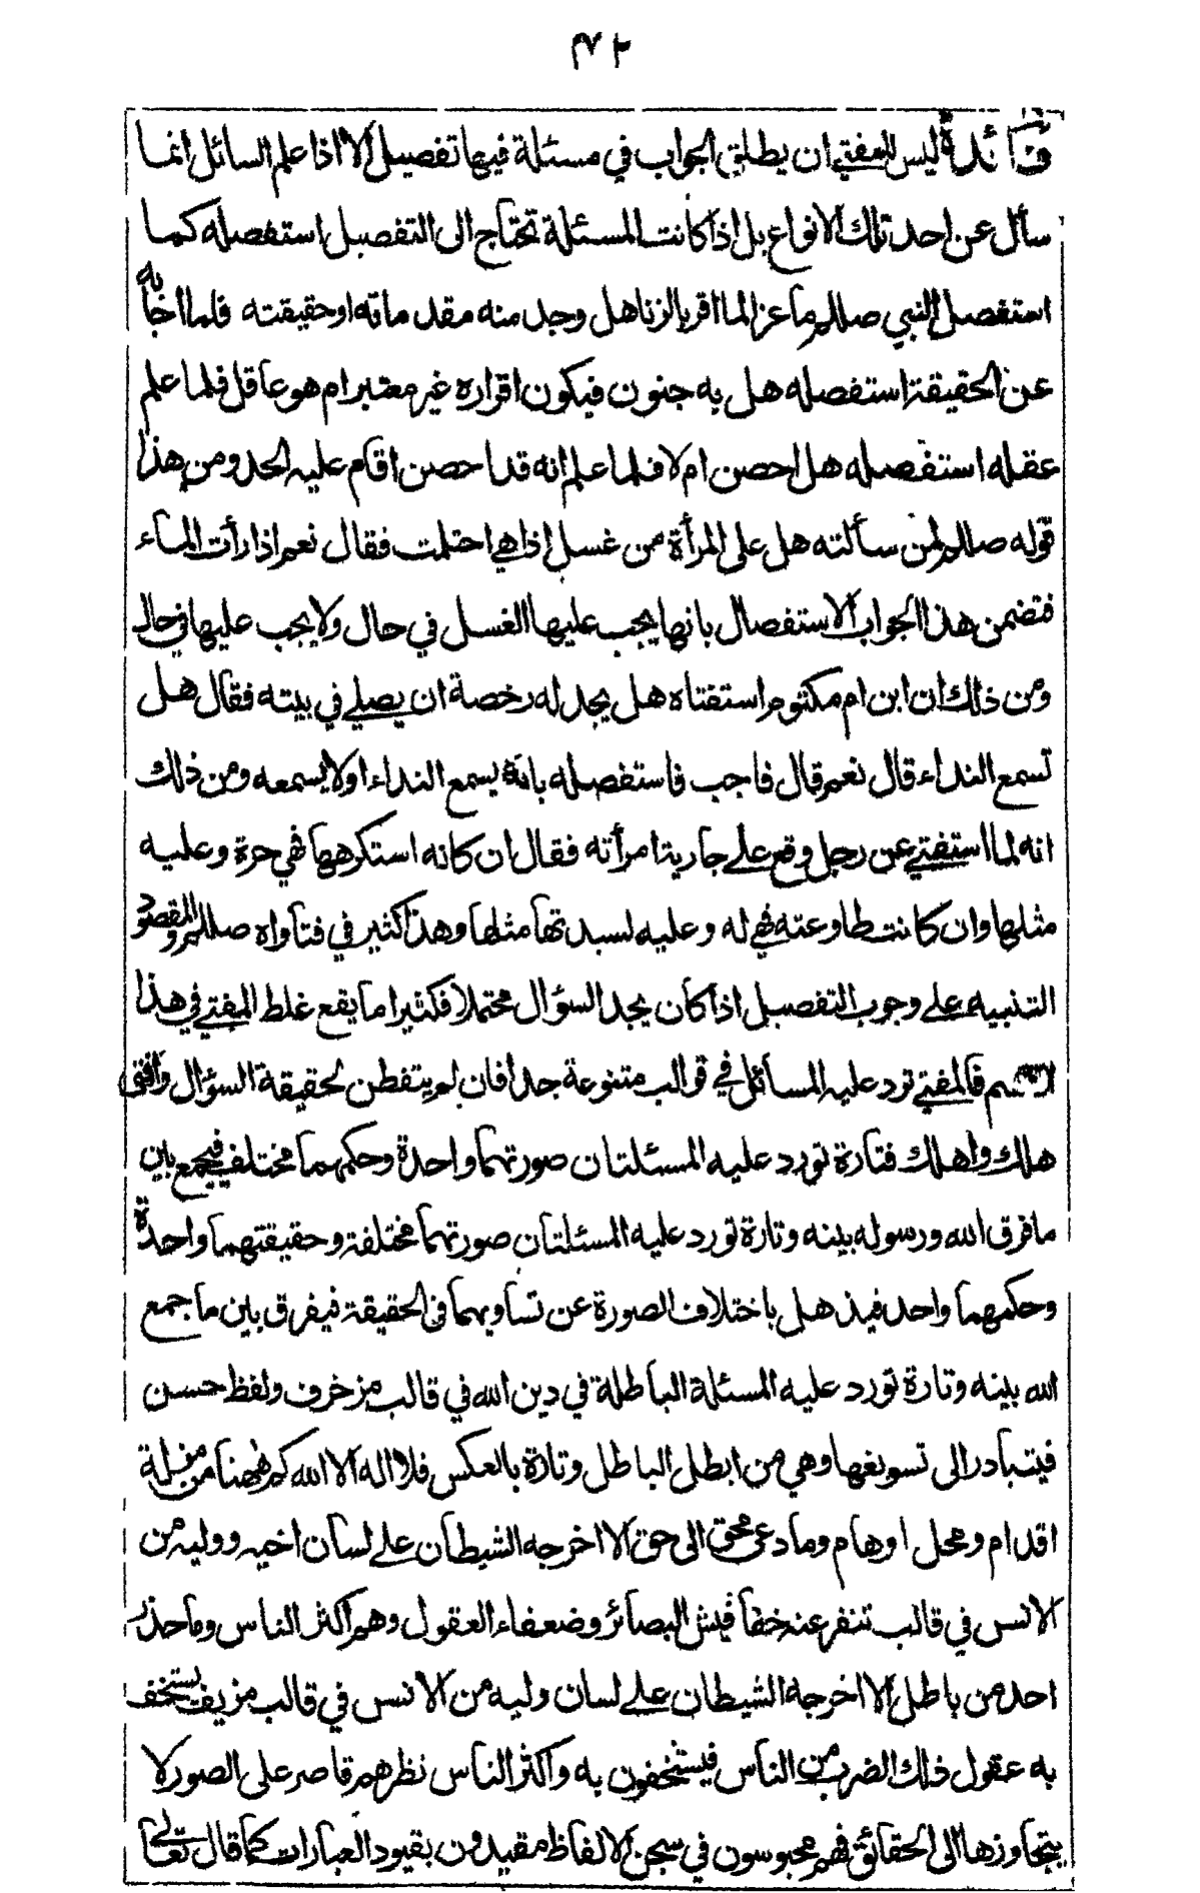 ٤٢
فائدة ليس للمفتي ان يطلق الجواب في مسئلة فيها تفصيل الا اذا علم السائل انما
سأل عن احد تلك الانواع بل اذا كانت المسئلة تحتاج الى التفصيل استفصله كما
استفصل النبي صللم ماعزا لما اقر بالزنا هل وجد منه مقدماته او حقيقته فلما اجابه
عن الحقيقة استفصله هل به جنون فيكون اقراره غير معتبر ام هو عاقل فلما علم
عقله استفصله هل احصن ام لا فلما علم انه قد احصن اقام عليه الحد ومن هذا
قوله صللم لمن سألته هل على المرأة من غسل اذا هي احتلمت فقال نعم اذا رأت الماء
فتضمن هذا الجواب الاستفصال بانها يجب عليها الغسل في حال ولا يجب عليها في حال
ومن ذلك ان ابن ام مكتوم استفتاه هل يجد له رخصة ان يصلي في بيته فقال هل
تسمع النداء قال نعم قال فاجب فاستفصله بانه يسمع النداء اولا يسمعه ومن ذلك
انه لما استفتي عن رجل وقع على جارية امرأته فقال ان كانه استكرهها فهي حرة وعليه
مثلها وان كانت طاوعته فهي له وعليه لسيدتها مثلها وهذا كثير في فتاواه صللم والمقصود
التنبيه على وجوب التفصيل اذا كان يجد السؤال محتملا فكثيرا ما يقع غلط المفتي في هذا
القسم فالمفتي ترد عليه المسائل في قوالب متنوعة جدا فان لم يتفطن لحقيقة السؤال وافتى
هلك واهلك فتارة تورد عليه المسئلتان صورتهما واحدة وحكمهما مختلف فيجمع بين
ما فرق الله ورسوله بينه وتارة تورد عليه المسئلتان صورتهما مختلفة وحقيقتهما واحدة
وحكمهما واحد فيذهل باختلاف الصورة عن تساويهما في الحقيقة فيفرق بين ما جمع
الله بينه وتارة تورد عليه المسئلة الباطلة في دين الله في قالب مزخرف ولفظ حسن
فيتبادر الى تسويغها وهي من ابطل الباطل وتارة بالعكس فلا اله الا الله كم ههنا من مزلة
اقدام ومحل اوهام وما دعى محق الى حق الا اخرجه الشيطان على لسان اخيه ووليه من
الانس في قالب تنفر عنه خفافيش البصائر وضعفاء العقول وهم اكثر الناس وما حذر
احد من باطل الا اخرجه الشيطان على لسان وليه من الانس في قالب مزيف يستخف
به عقول ذلك الضرب من الناس فيستخفون به واكثر الناس نظرهم قاصر على الصور لا
يتجاوزها الى الحقائق فهم محبوسون في سجن الالفاظ مقيدون بقيود العبارات كما قال تعالى